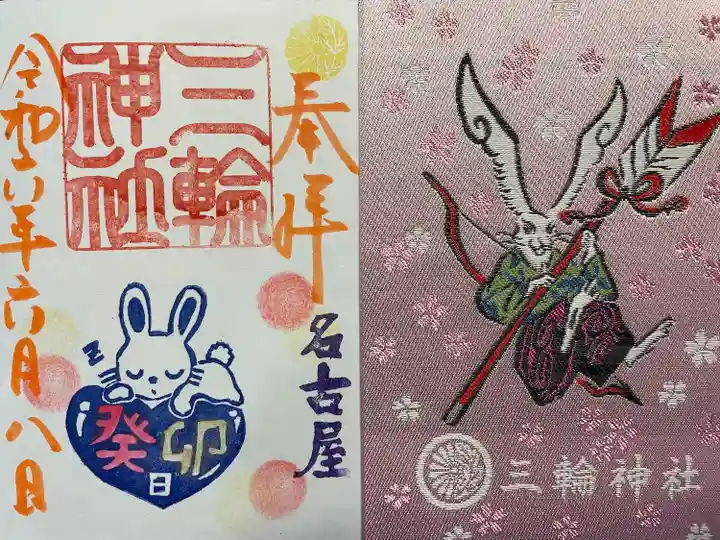 奉拝
名古屋
三輪
神社
z
癸卯
日
令和六年六月八日
三輪神社